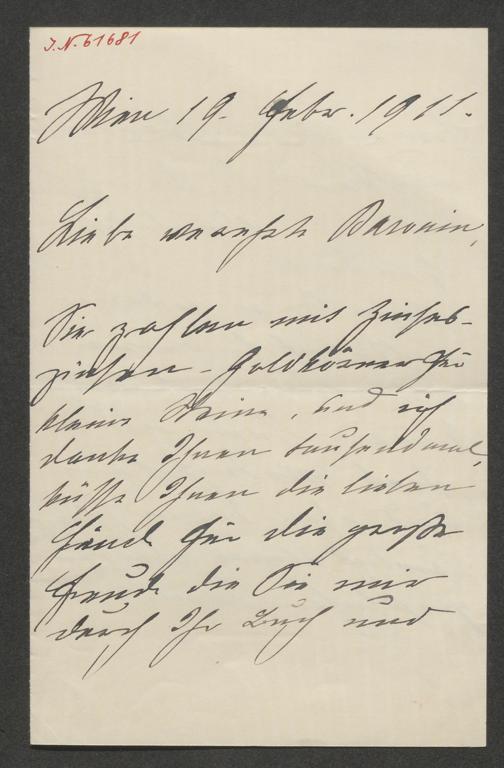 J.N. 61681
Wien 19. Febr. 1911.
Liebe verehrte Baronin,
Sie zahlen mit Zinses-
zinsen – Goldkörner für
kleine Steine, und ich
danke Ihnen tausendmal,
küsse Ihnen die lieben
Händ für die große
Freude die Sie mir
durch Ihr Buch und